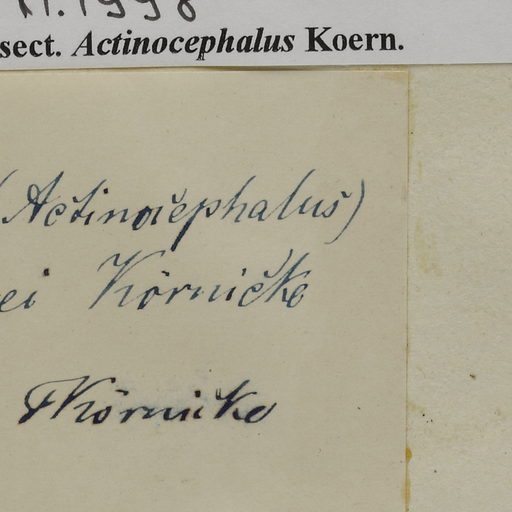 XI.1998
sect. Actinocephalus Koern.
(Actinocephalus)
ei Körnicke
FKörnicke